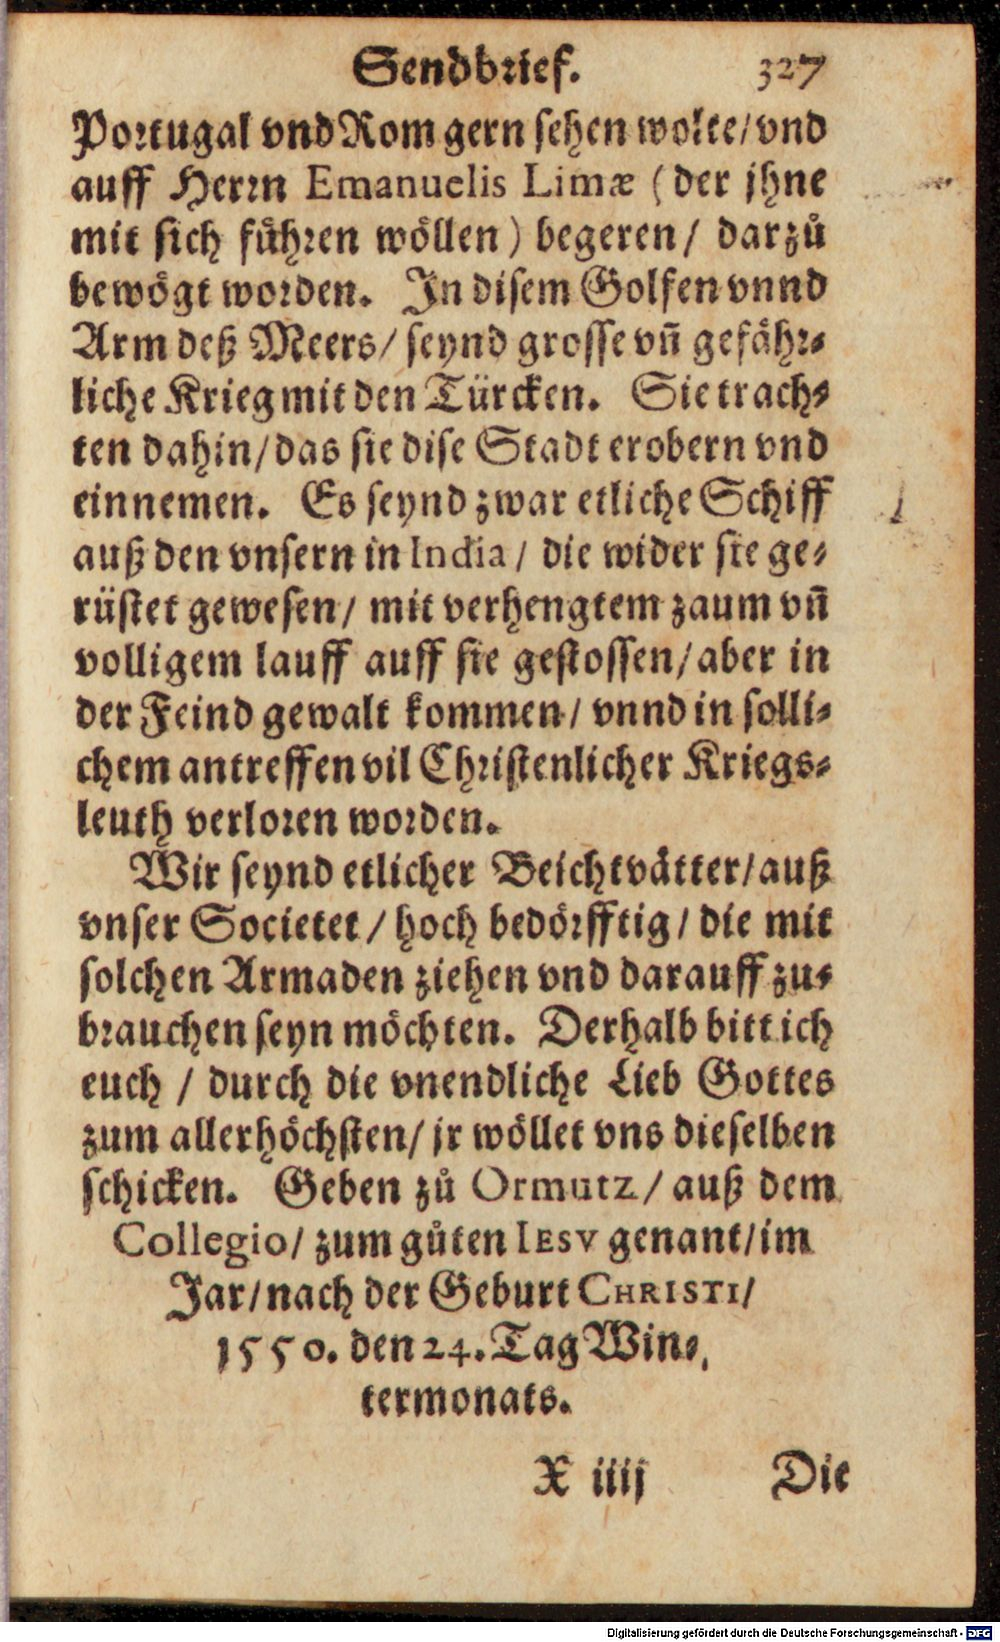 Sendbrief. 327
Portugal vnd Rom gern sehen wolte/ vnd
auff Herrn Emanuelis Limæ (der jhne
mit sich führen wöllen) begeren/ darzů
bewögt worden. In disem Golfen vnnd
Arm deß Meers/ seynd grosse vñ gefähr⸗
liche Krieg mit den Türcken. Sie trach⸗
ten dahin/ das sie dise Stadt erobern vnd
einnemen. Es seynd zwar etliche Schiff
auß den vnsern in India/ die wider sie ge⸗
rüstet gewesen/ mit verhengtem zaum vñ
volligem lauff auff sie gestossen/ aber in
der Feind gewalt kommen/ vnnd in solli⸗
chem antreffen vil Christenlicher Kriegs⸗
leuth verloren worden.
Wir seynd etlicher Beichtvätter/ auß
vnser Societet/ hoch bedörfftig/ die mit
solchen Armaden ziehen vnd darauff zu⸗
brauchen seyn möchten. Derhalb bitt ich
euch/ durch die vnendliche Lieb Gottes
zum allerhöchsten/ jr wöllet vns dieselben
schicken. Geben zů Ormutz/ auß dem
Collegio/ zum gůten IESV genant/ im
Jar/ nach der Geburt CHRISTI/
1550. den 24. Tag Win⸗
termonats.
X iiij Die
Digitalisierung gefördert durch die Deutsche Forschungsgemeinschaft - DFG